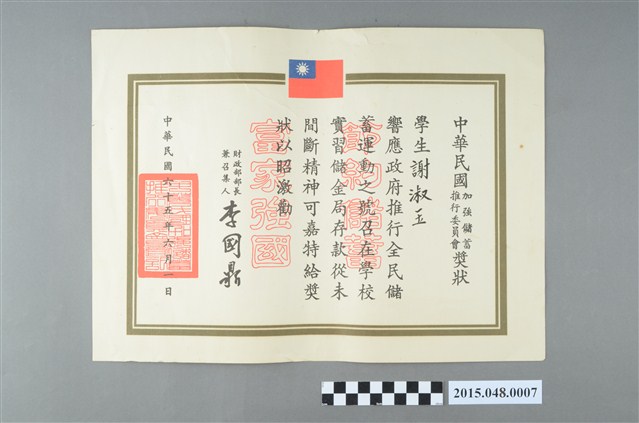 中華民國加強儲蓄推行委員會獎狀
學生謝淑玉
響應政府推行全民儲
蓄運動之號召在學校
實習儲金局存款從未
間斷精神可嘉特給獎
狀以昭激勸
財政部部長
兼召集人
李國鼎
中華民國六十五年六月一日
節約儲蓄
富家強國
2015.048.0007